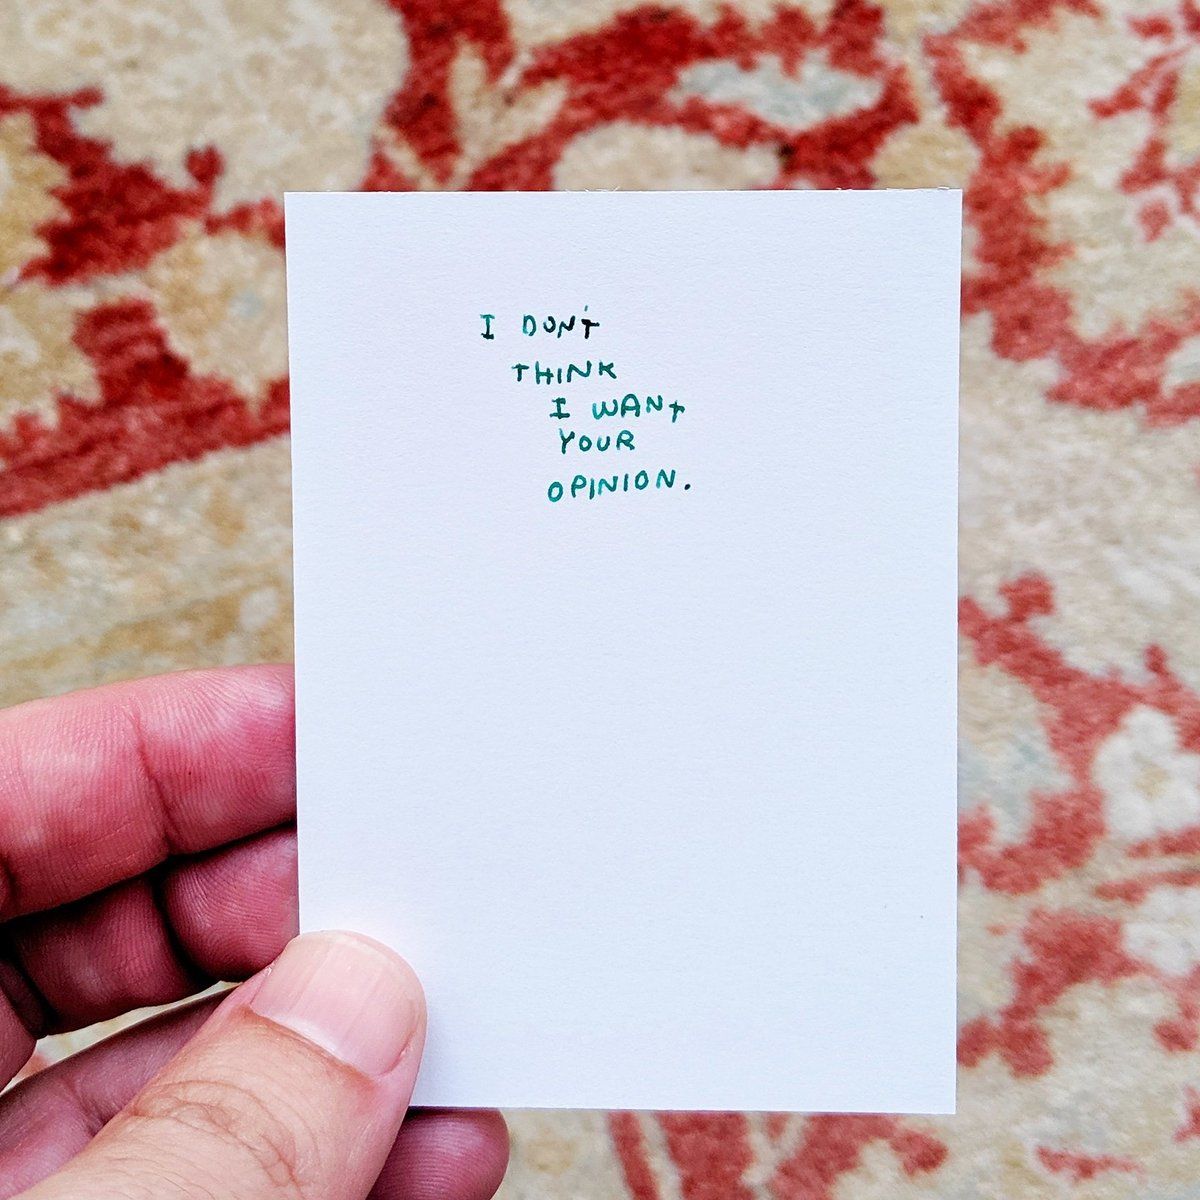 I DON'T
THINK
I WANT
YOUR
OPINION.